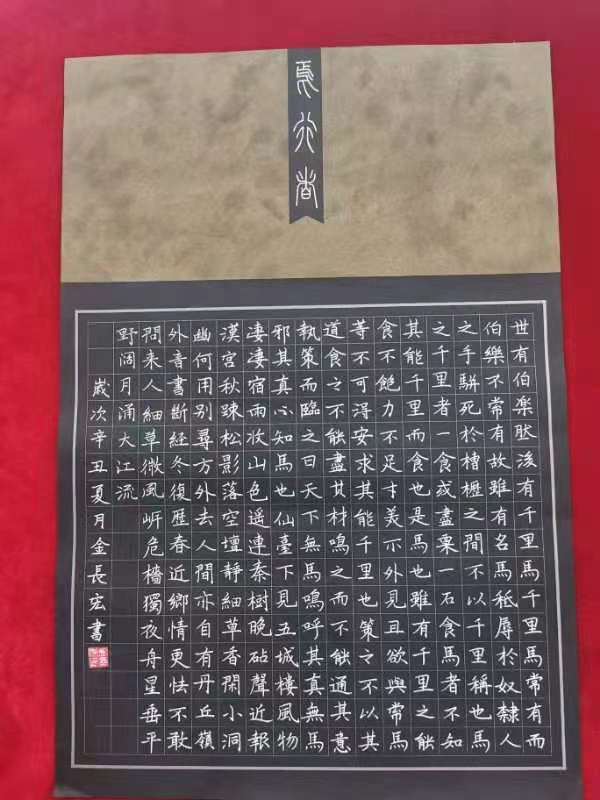 行者
世有伯楽肰後有千里馬千里馬常有而
伯樂不常有故雖有名馬秪辱於奴隸人
之手駢死於槽櫪之間不以千里稱也馬
之千里者一食或盡粟一石食馬者不知
其能千里而食也是馬也雖有千里之能
食不飽力不足才美不外見且欲與常馬
等不可得安求其能千里也策之不以其
道食之不能盡其材鳴之而不能通其意
執策而臨之曰天下無馬鳴呼其真無馬
邪其真不知馬也仙臺下見五城樓風物
凄凄宿雨收山色遥連秦樹晚砧聲近報
漢宮秋踈松影落空壇靜細草香閑小洞
幽何用别尋方外去人間亦自有丹丘嶺
外音書斷經冬復歷春近鄉情更怯不敢
問来人細草微風岍危檣獨夜舟星垂平
野阔月涌大江流
歲次辛丑夏月金長宏書